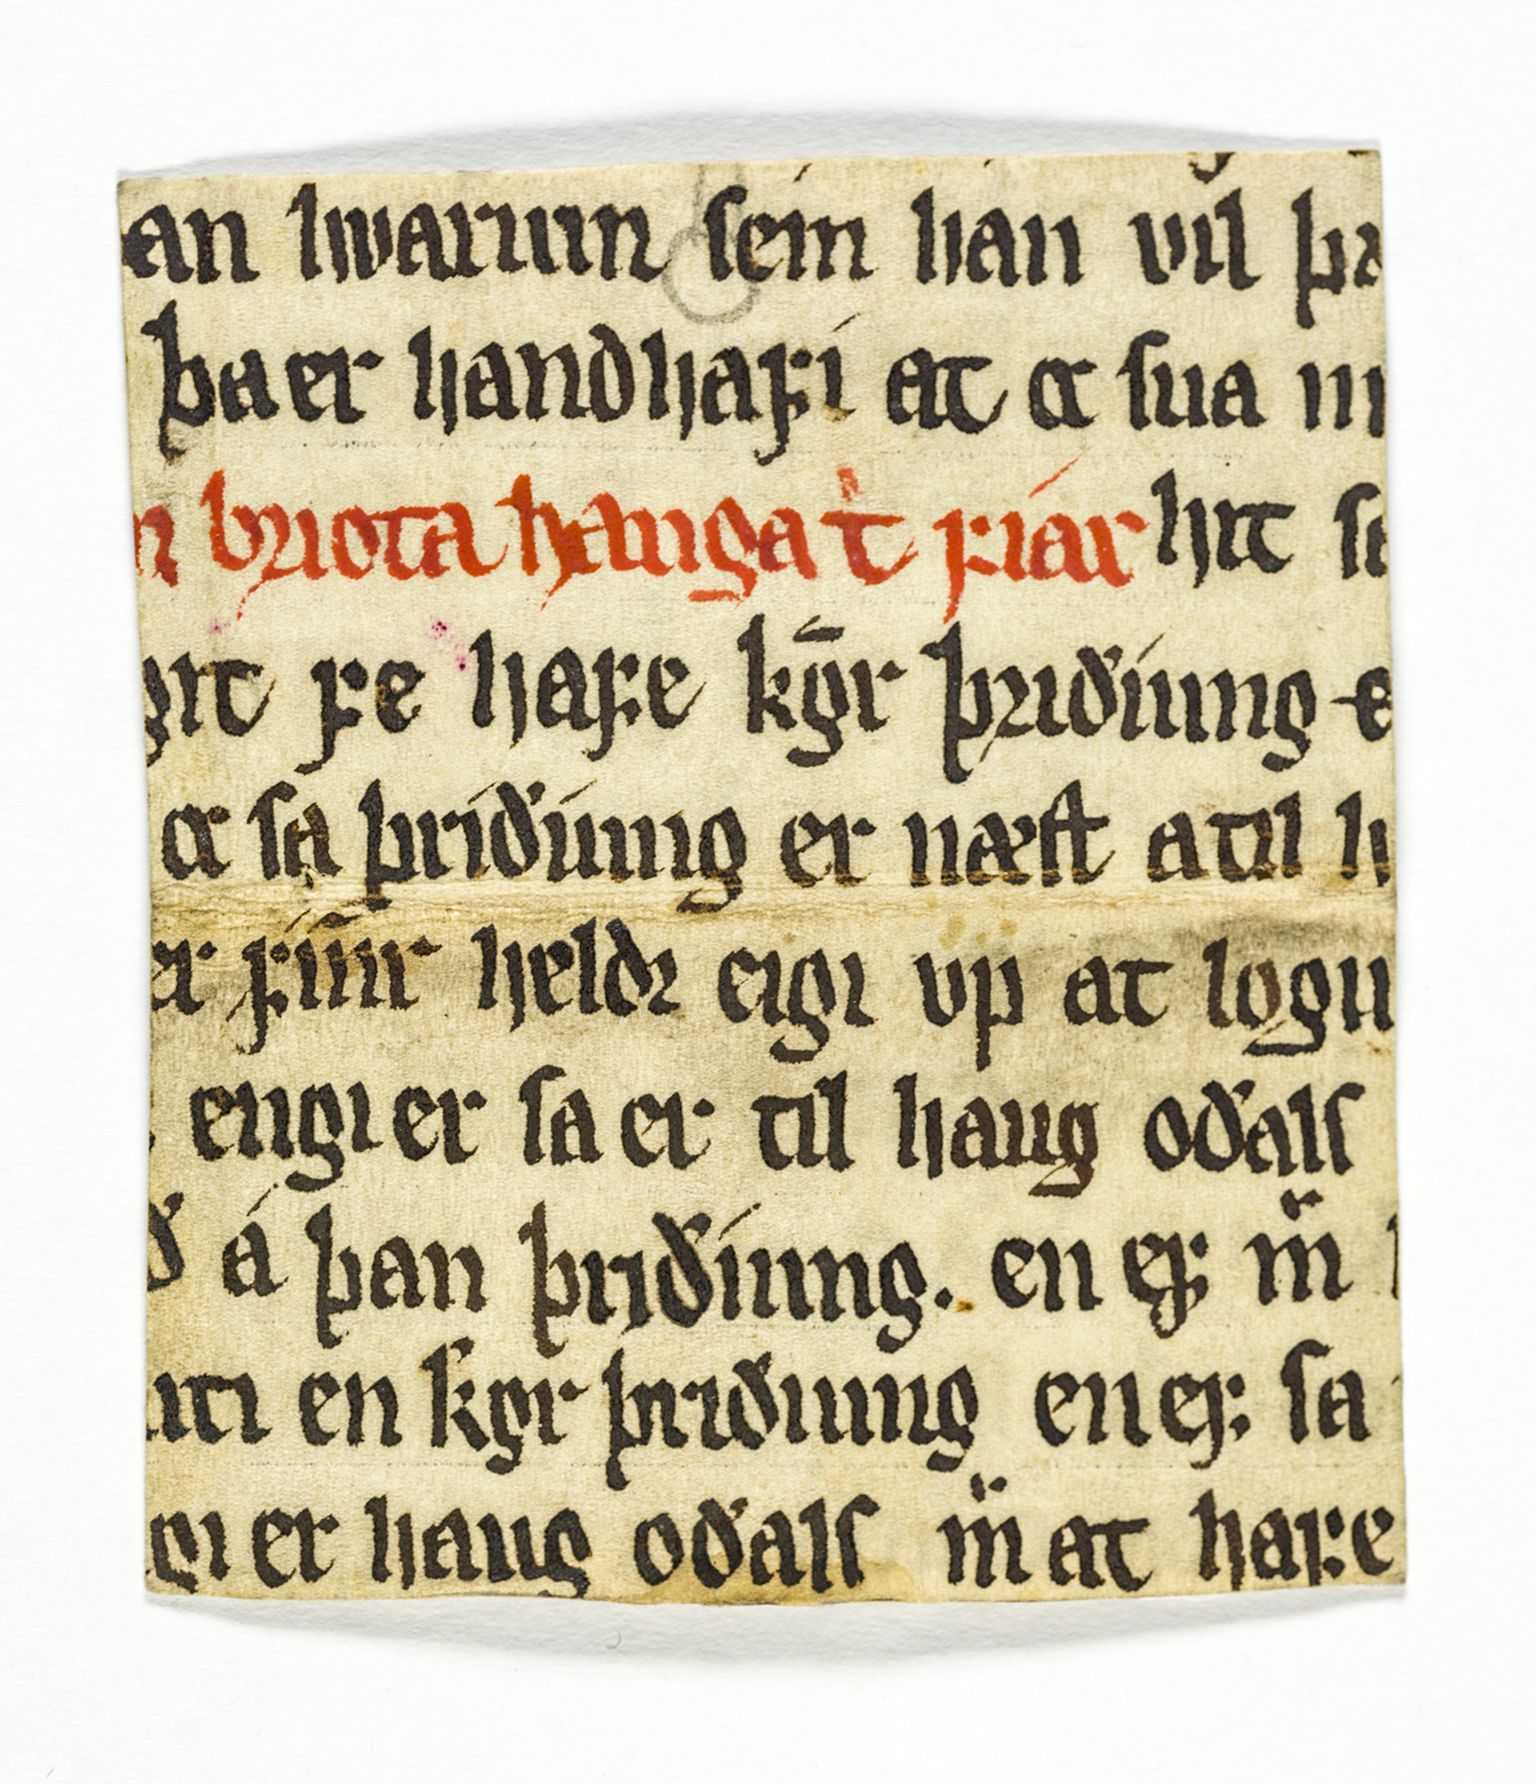 an hvarium sem han vıl þa
þa er handhafi at æ sua m
n brıota hauga t fiar hıt s
gıt fe hafe kgr þrıðiung e
æ sa þriðiung er næst a tıl h
er fiıır heldr eıgı vp at logu
engı er sa er tıl haug oðals
ð á þan þrıðiung. en ef m̈
ıtı en kgr þrıðıung en ef sa
gı er haug oðals m̈ at hafe